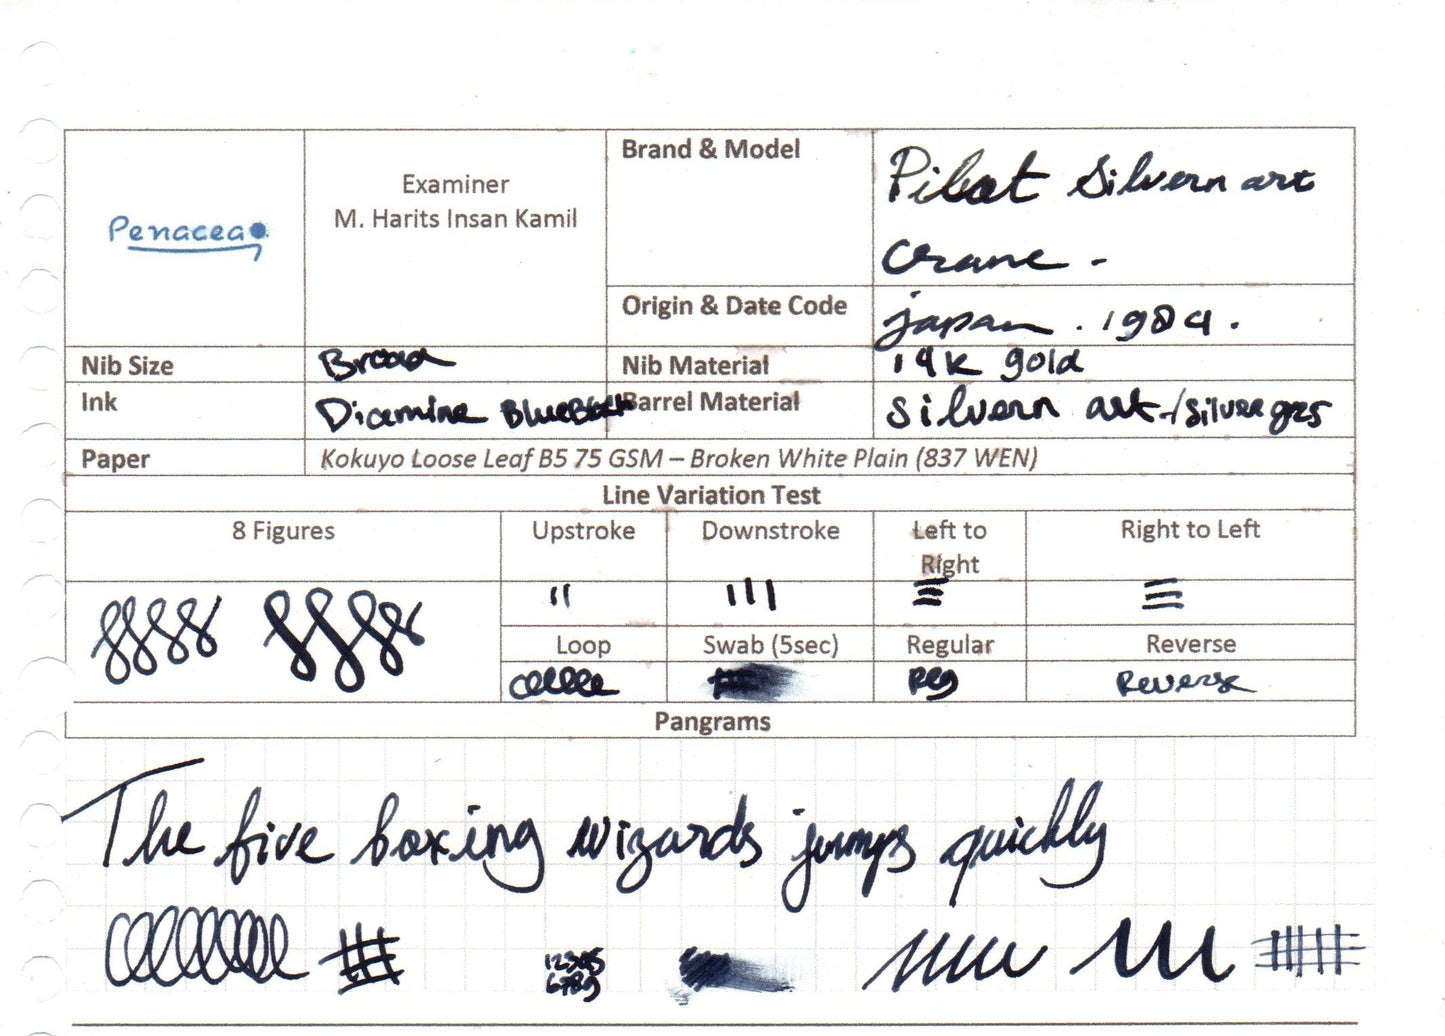 Penacea
Examiner
M. Harits Insan Kamil
Brand & Model
Pilot Silvern art
Crane -
Origin & Date Code
japan . 1984 .
Nib Size
Broad
Nib Material
14K gold
Ink
Diamine BlueBlack
Barrel Material
Silvern art-/silver 925
Paper
Kokuyo Loose Leaf B5 75 GSM – Broken White Plain (837 WEN)
Line Variation Test
8 Figures
Upstroke
Downstroke
Left to
Right
Right to Left
Loop
Swab (5sec)
Regular
Reverse
Reg
Reverse
Pangrams
The five boxing wizards jumps quickly
12345
6789